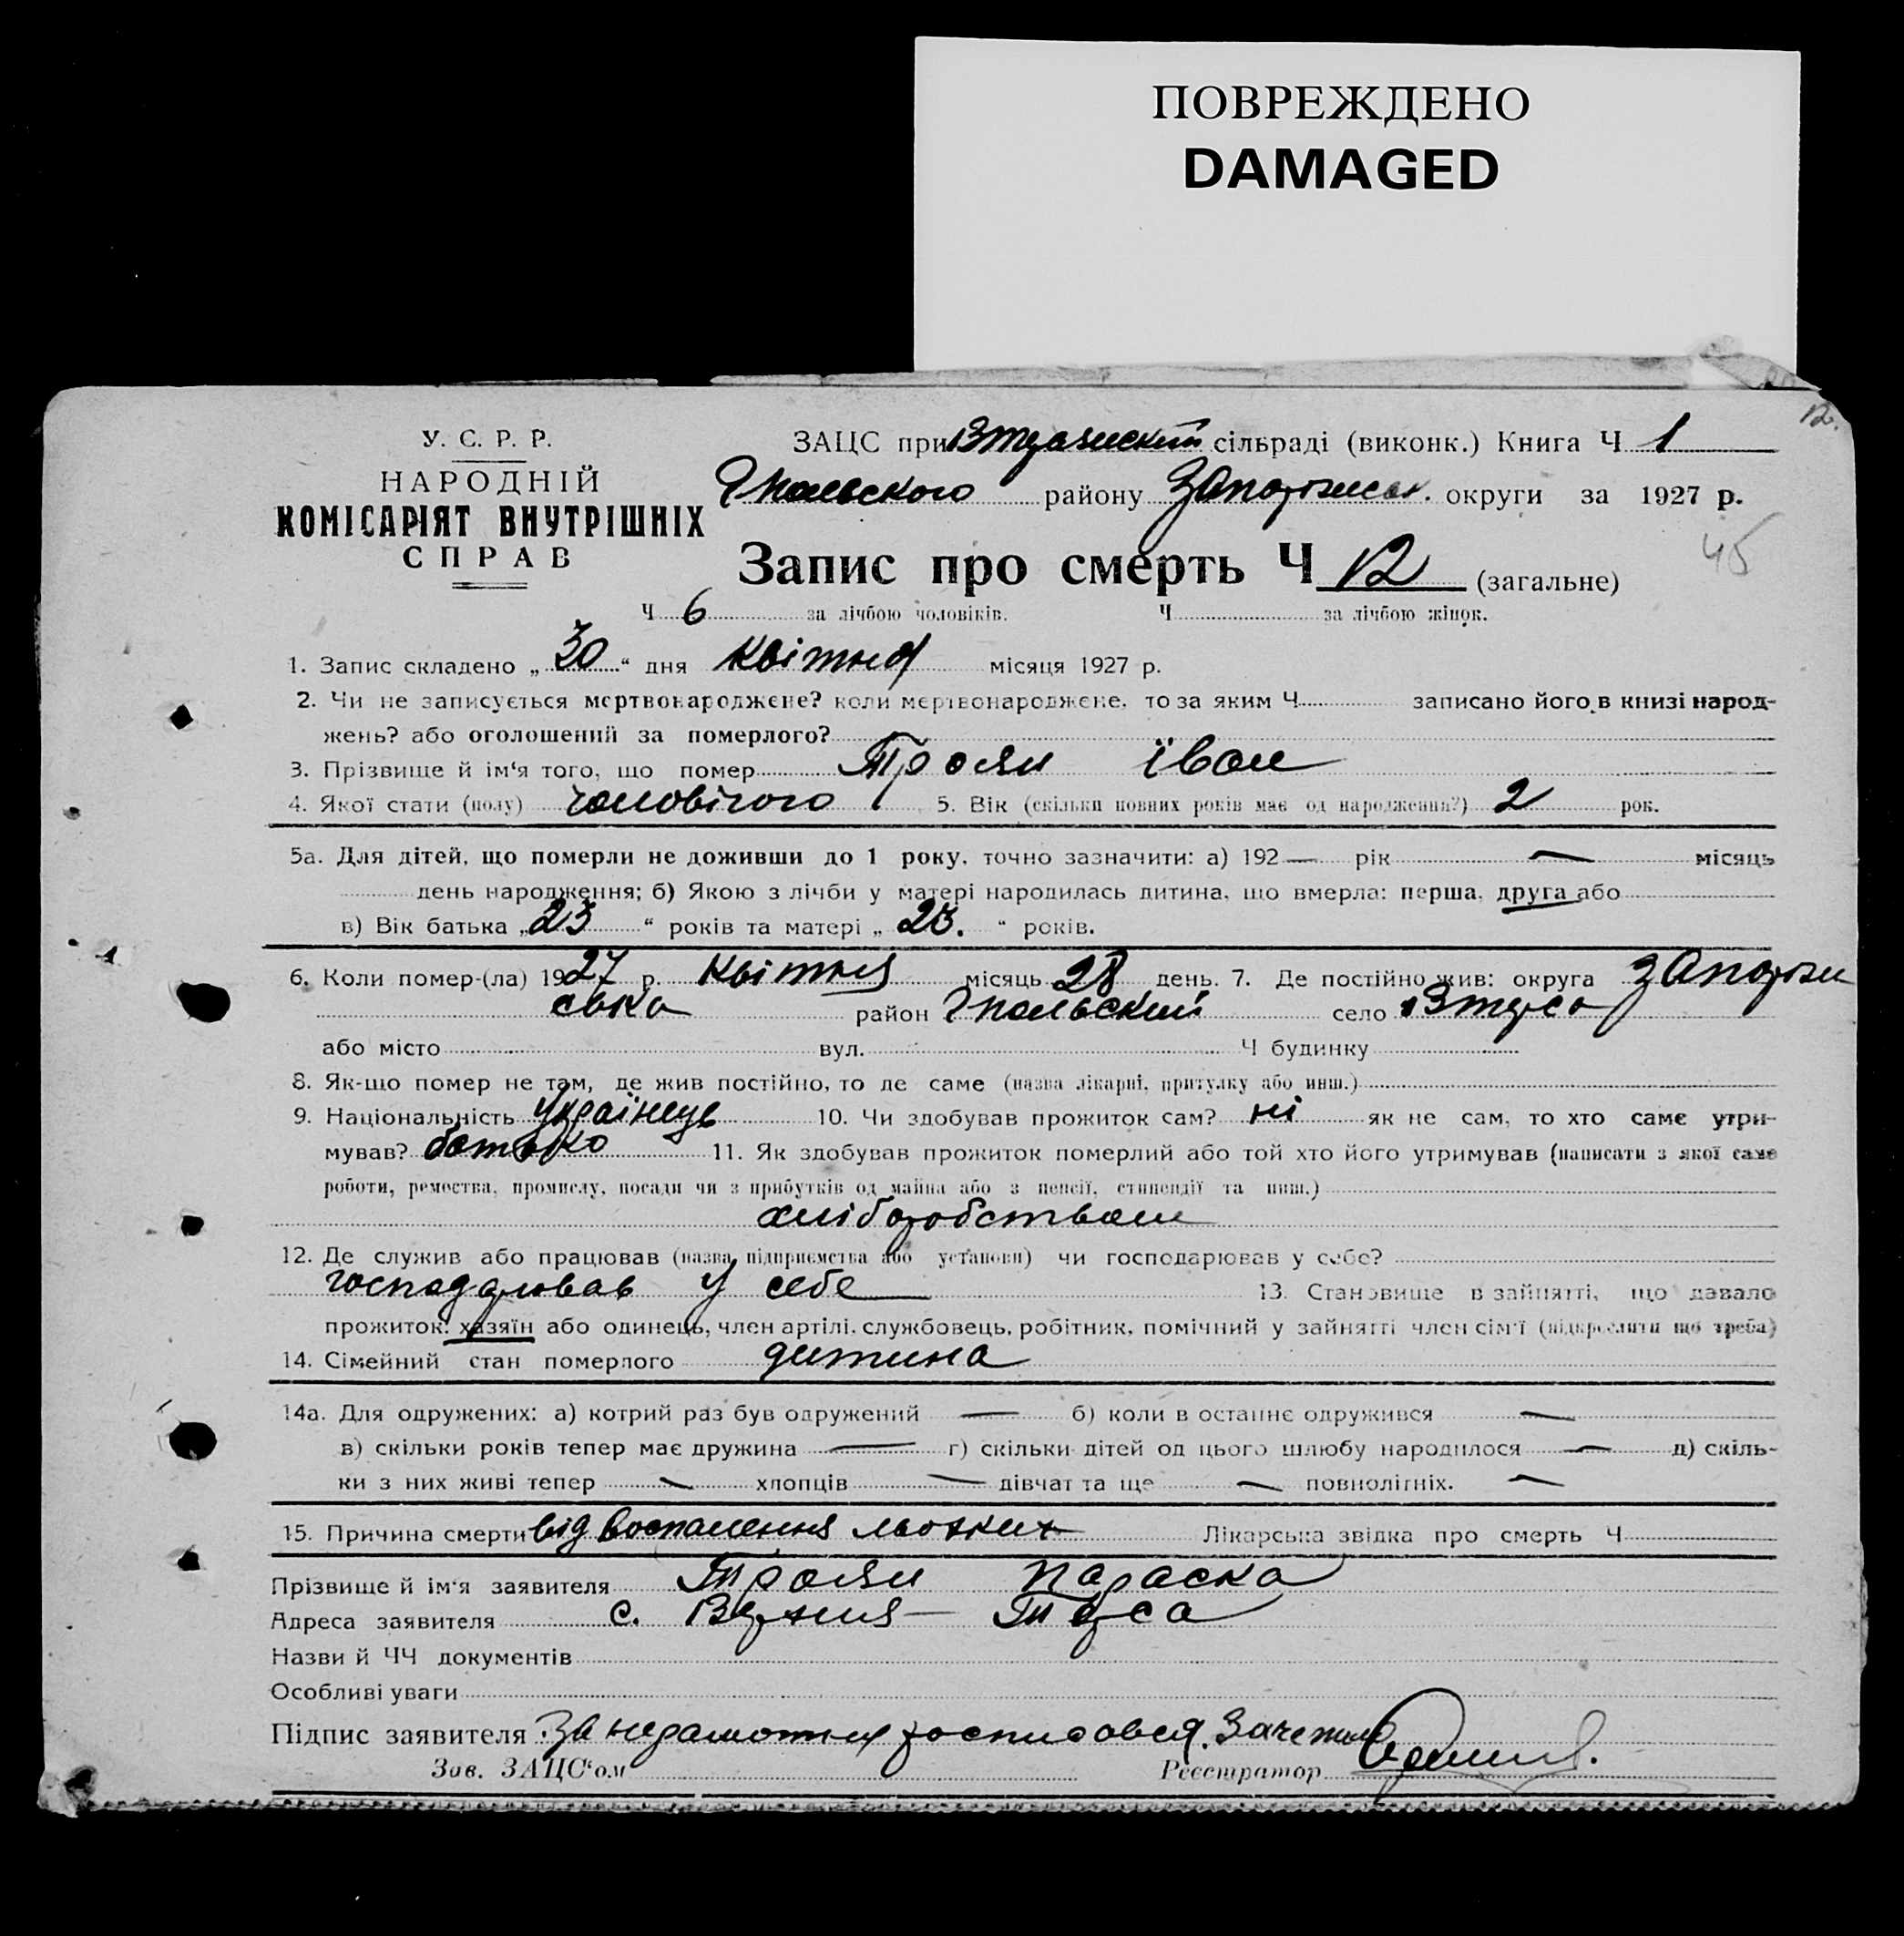 ПОВРЕЖДЕНО
DAMAGED
12.
У. С. Р. Р.
НАРОДНІЙ
КОМІСАРІЯТ ВНУТРІШНІХ
СПРАВ
ЗАЦС при сільраді (виконк.) Книга Ч 1
району Запоріжськ. округи за 1927 р.
45
Запис про смерть Ч 12 (загальне)
Ч 6 за лічбою чоловіків. Ч за лічбою жінок.
1. Запис складено „30“ дня Квітня місяця 1927 р.
2. Чи не записується мертвонароджене? коли мертвонароджене, то за яким Ч записано його в книзі народ-
жень? або оголошений за померлого?
3. Прізвище й ім‘я того, що помер Троян Іван
4. Якої стати (полу) чоловічого 5. Вік (скільки повних років має од народження?) 2 рок.
5а. Для дітей, що померли не доживши до 1 року, точно зазначити: а) 192— рік — місяць
день народження; б) Якою з лічби у матері народилась дитина, що вмерла: перша, друга або
в) Вік батька „23“ років та матері „23.“ років.
6. Коли помер-(ла) 1927 р. Квітня місяць 28 день. 7. Де постійно жив: округа Запоріжи
ська район село
або місто вул. Ч будинку
8. Як-що помер не там, де жив постійно, то де саме (назва лікарні, притулку або инш.)
9. Національність Українець 10. Чи здобував прожиток сам? ні як не сам, то хто саме утри-
мував? батько 11. Як здобував прожиток померлий або той хто його утримував (написати з якої саме
роботи, ремества, промислу, посади чи з прибутків од майна або з пенсії, стипендії та инш.)
хліборобством
12. Де служив або працював (назва підприємства або установи) чи господарював у себе?
господарював у себе 13. Становище в зайнятті, що давало
прожиток: хазяїн або одинець, член артілі, службовець, робітник, помічний у зайнятті член сім‘ї (підкреслити що треба)
14. Сімейний стан померлого дитина
14а. Для одружених: а) котрий раз був одружений — б) коли в останнє одружився —
в) скільки років тепер має дружина — г) скільки дітей од цього шлюбу народилося — д) скіль-
ки з них живі тепер — хлопців — дівчат та ще — повнолітніх. —
15. Причина смерти від воспалення льогких Лікарська звідка про смерть Ч
Прізвище й ім‘я заявителя Троян Параска
Адреса заявителя с. Вдржня — Терса
Назви й ЧЧ документів
Особливі уваги
Підпис заявителя За неграмотну росписався
Зав. ЗАЦС‘ом Реєстратор